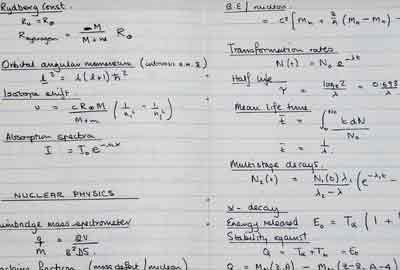 Rydberg Const.
R∞ = R∞
R hydrogen = M / M+m R∞
Orbital angular momentum
l² = l(l+1)ħ²
Isotope shift.
υ = cR∞M / M+m (1/n₁² - 1/n₂²)
Absorption spectra
I = I₀e
NUCLEAR PHYSICS
mass spectrometer
q/m =
(mass defect/nucleon)
B.E/nucleon
= c² [Mₙ + (Mₙ - Mₙ) -
Transformation rates
N(t) = N₀e^-λt
Half life
τ = log 2 / λ = 0.693
Mean life time
t̄ = ∫ t dN / N₀
t̄ = 1/λ
Multistage decays.
N₂(t) = N₁(0)λ₁ / λ₂ - λ (e^-λ₁t -
α - decay
Energy released E₀ = Tα (1 +
Stability against
Q = Tα + T = E₀